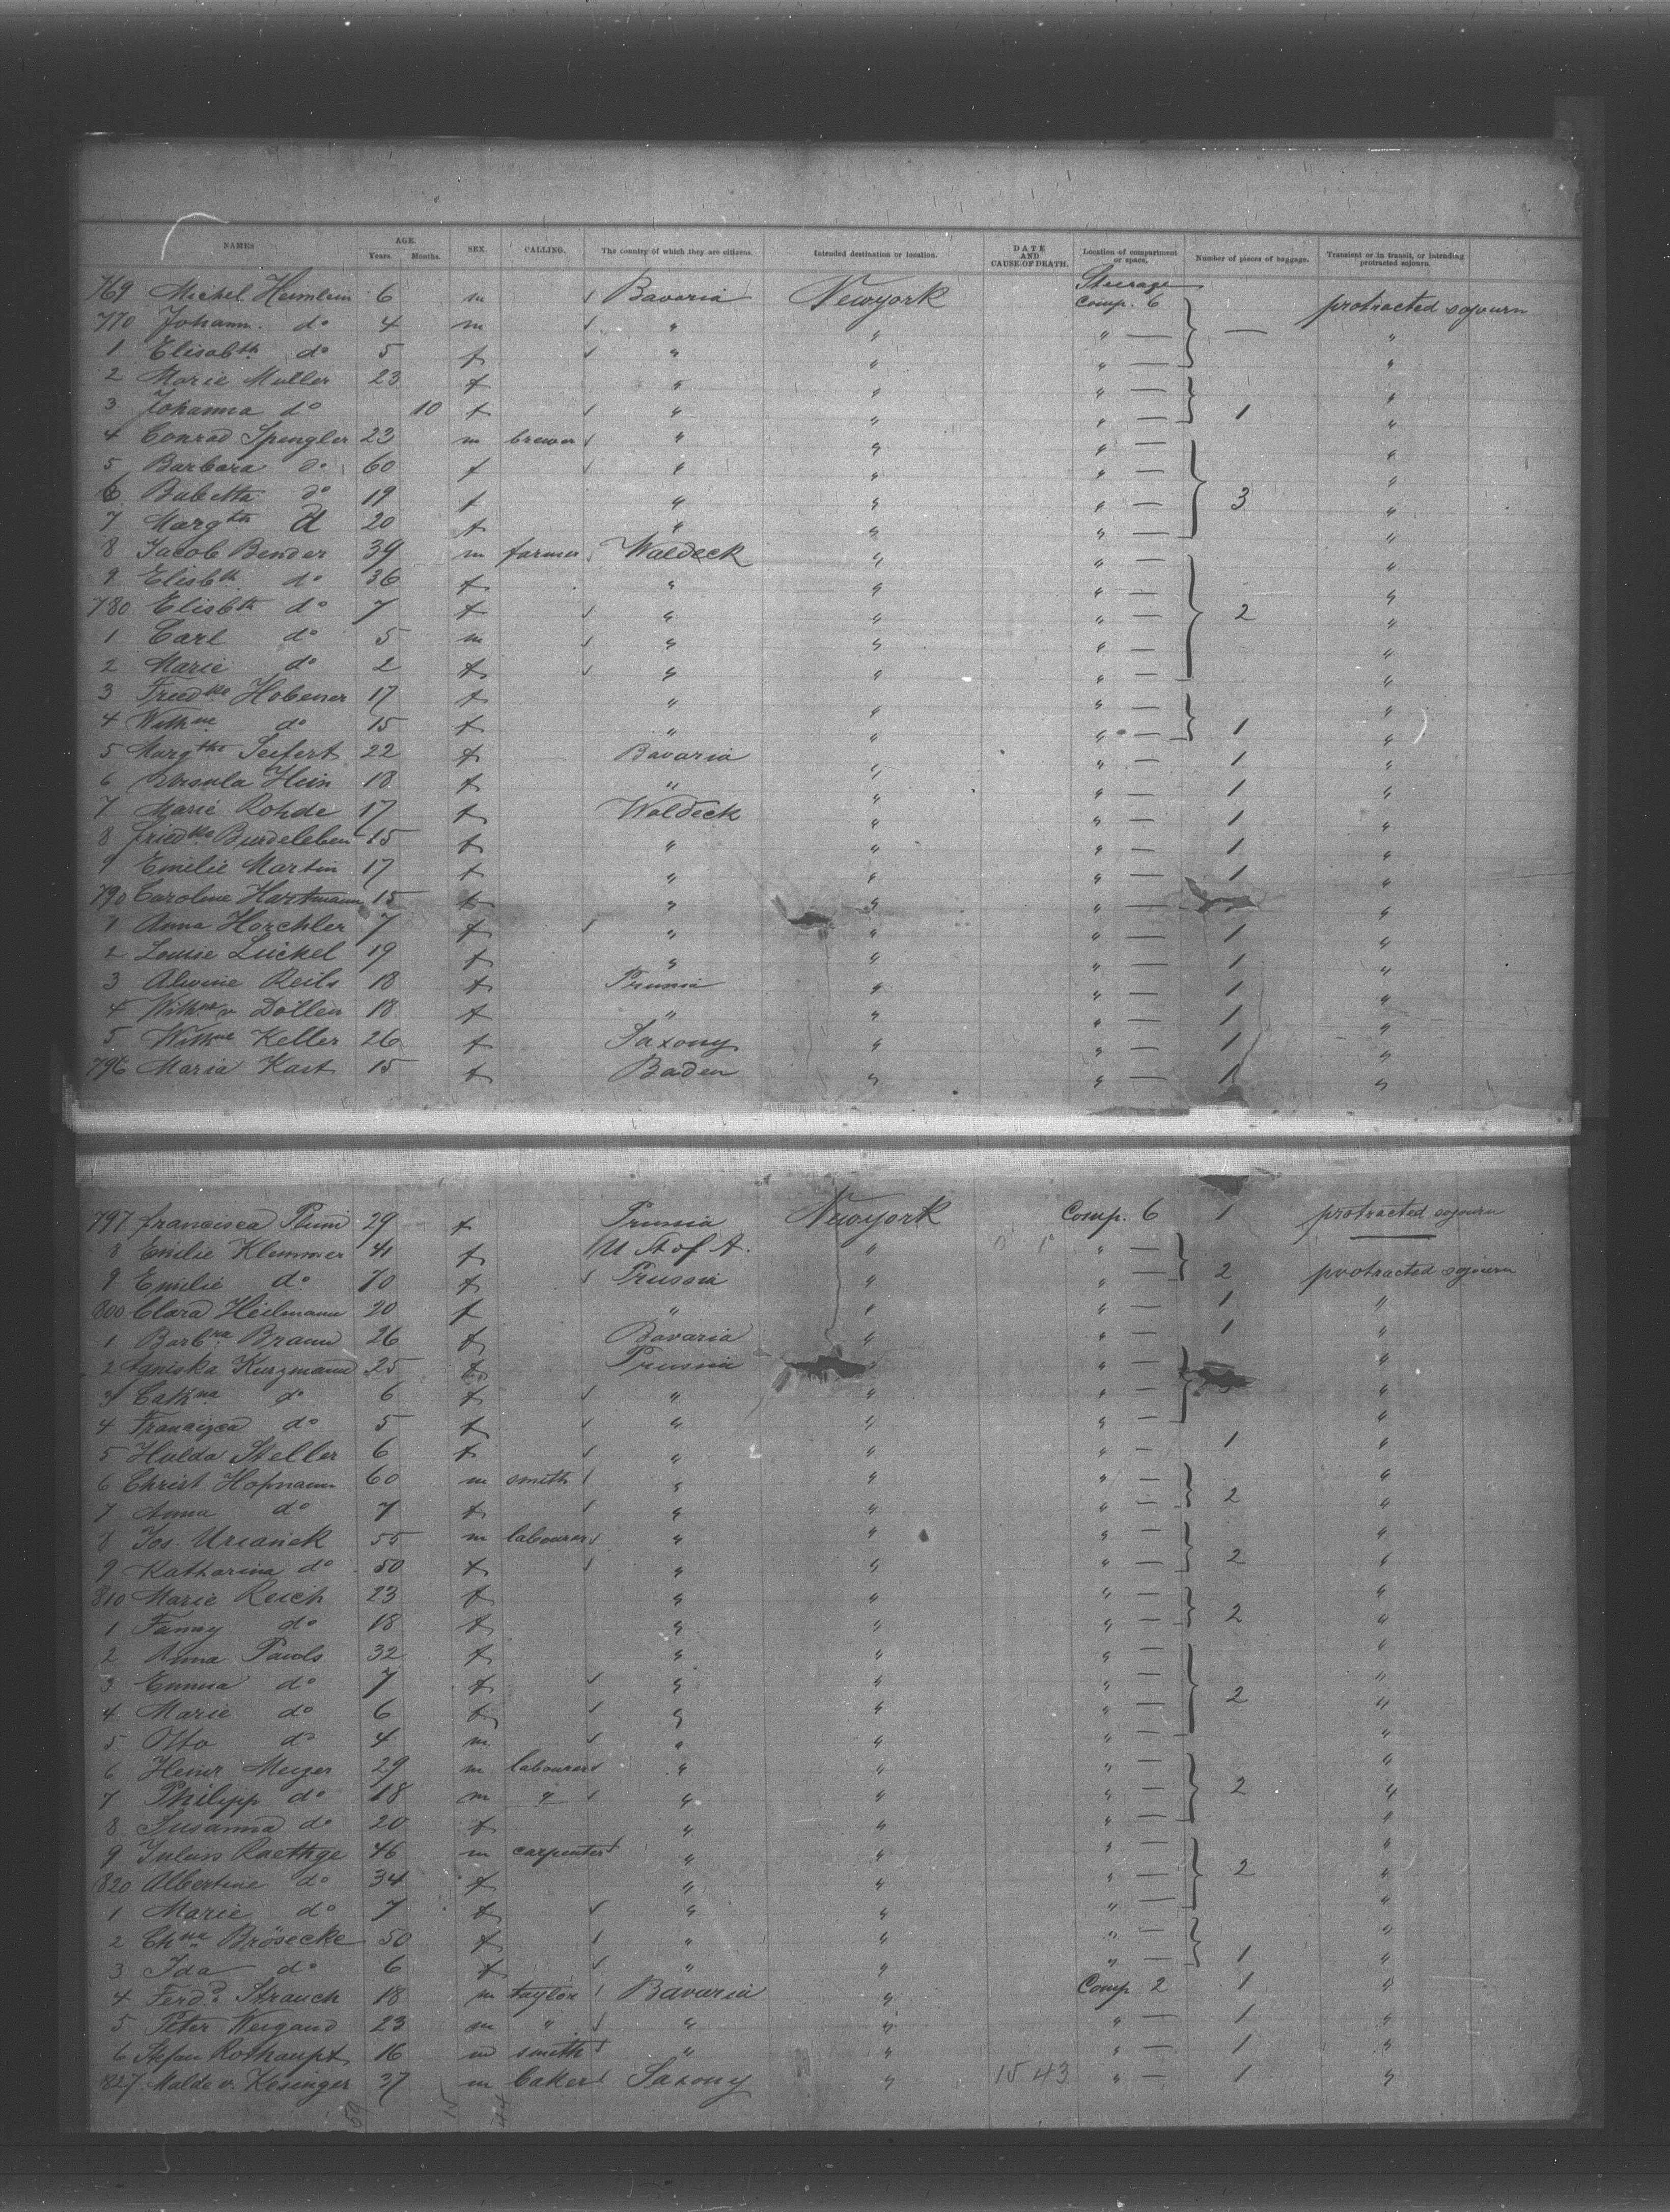 NAMES AGE. Years. Months. SEX. CALLING. The country of which they are citizens. Intended destination or location. DATE AND CAUSE OF DEATH. Location of compartment or space. Number of pieces of baggage. Transient or in transit, or intending protracted sojourn.
769 Michel Heimlein 6 m ✓ Bavaria Newyork Steerage Comp. 6 protracted sojourn
770 Johann. do 4 m ✓ " " " — — "
1 Elisabth do 5 f ✓ " " " — "
2 Marie Muller 23 f " " " — "
3 Johanna do 10 f ✓ " " " — 1 "
4 Conrad Spengler 23 m brewer ✓ " " " — "
5 Barbara do 60 f ✓ " " " — "
6 Babetta do 19 f " " " — 3 "
7 Margth d 20 f " " " — "
8 Jacob Bender 39 m farmer ✓ Waldeck " " — "
9 Elisbth do 36 f " " " — "
780 Elisbth do 7 f ✓ " " " — 2 "
1 Carl do 5 m ✓ " " " — "
2 Marie do 2 f ✓ " " " — "
3 Friedke Hobener 17 f " " " — "
4 Wilhne do 15 f " " " — 1 "
5 Margthe Seifert 22 f Bavaria " " — 1 "
6 Ursula Hein 18 f " " " — 1 "
7 Marie Rohde 17 f Waldeck " " — 1 "
8 Friedke Burdeleben 15 f " " " — 1 "
9 Emilie Martin 17 f " " " — 1 "
790 Caroline Hartmann 15 f " " " — "
1 Anna Horchler 7 f ✓ " " " — 1 "
2 Louise Lückel 19 f " " " — 1 "
3 Alwine Reils 18 f Prussia " " — 1 "
4 Wilhne v Döllen 18 f " " " — 1 "
5 Wilhne Keller 26 f Saxony " " — 1 "
796 Maria Kast 15 f Baden " " — 1 "
797 Francisca 29 f Prussia Newyork Comp. 6 1 protracted sojourn
8 Emilie Klemmer 41 f U St of A. " " —
9 Emilie do 70 f ✓ Prussia " " — 2 protracted sojourn
800 Clara Heilmann 20 f " " " — 1 "
1 Barbra Braun 26 f Bavaria " " — 1 "
2 Agniska Kurzmann 25 f Prussia " " — "
3 Cathna do 6 f ✓ " " " — "
4 Francisca do 5 f ✓ " " " — "
5 Hulda Steller 6 f ✓ " " " — 1 "
6 Christ Hofmann 60 m smith ✓ " " " — "
7 Anna do 7 f ✓ " " " — 2 "
8 Jos. Urianek 55 m labourer ✓ " " " — "
9 Katharina do 50 f ✓ " " " — 2 "
810 Marie Reich 23 f " " " — "
1 Fanny do 18 f " " " — 2 "
2 Anna Pauls 32 f " " " — "
3 Emma do 7 f ✓ " " " — "
4 Marie do 6 f ✓ " " " — 2 "
5 Otto do 4 m ✓ " " " — "
6 Heinr Meiger 29 m labourer ✓ " " " — "
7 Philipp do 18 m " ✓ " " " — 2 "
8 Susanna do 20 f " " " — "
9 Julius Raethge 46 m carpenter ✓ " " " — "
820 Albertine do 34 f " " " — 2 "
1 Marie do 7 f ✓ " " " — "
2 Chne Brösecke 50 f ✓ " " " — "
3 Ida do 6 f ✓ " " " — 1 "
4 Ferdd Strauch 18 m taylor ✓ Bavaria " Comp 2 1 "
5 Peter Weigand 23 m " ✓ " " " — 1 "
6 Stefan Rothaupt 16 m smith ✓ " " " — 1 "
827 Malde v. Kesinger 37 m baker ✓ Saxony " 15 43 " — 1 "